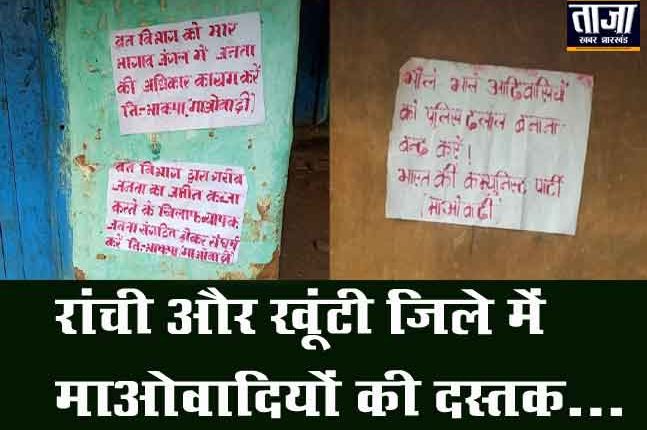 ताजा
खबर झारखंड
वन विभाग को मार
भागाव जंगल में जनता
की अधिकार कायम करें
नि:-भाकपा (माओवादी)
वन विभाग द्वारा गरीब
जनता का जमीन कब्जा
करने के खिलाफ व्यापक
जनता संगठित होकर संघर्ष
करें नि:-भाकपा (माओवादी)
भोले भाले आदिवासियों
को पुलिस दलाल बनाना
बन्द करें!
भारत की कम्युनिस्ट पार्टी
(माओवादी)
रांची और खूंटी जिले में
माओवादियों की दस्तक...